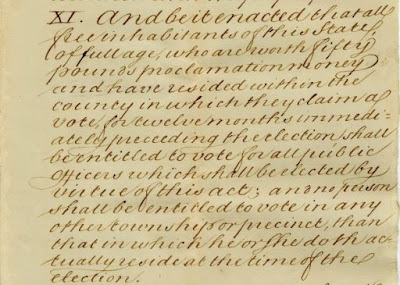 XI. And be it enacted that all
free inhabitants of this State,
of full age, who are worth fifty
pounds proclamation money
and have resided within the
county in which they claim a
vote, for twelve months immedi-
ately preceding the election, shall
be entitled to vote for all public
officers which shall be elected by
virtue of this act; and no person
shall be entitled to vote in any
other township or precinct, than
that in which he or she doth ac-
tually reside at the time of the
election.